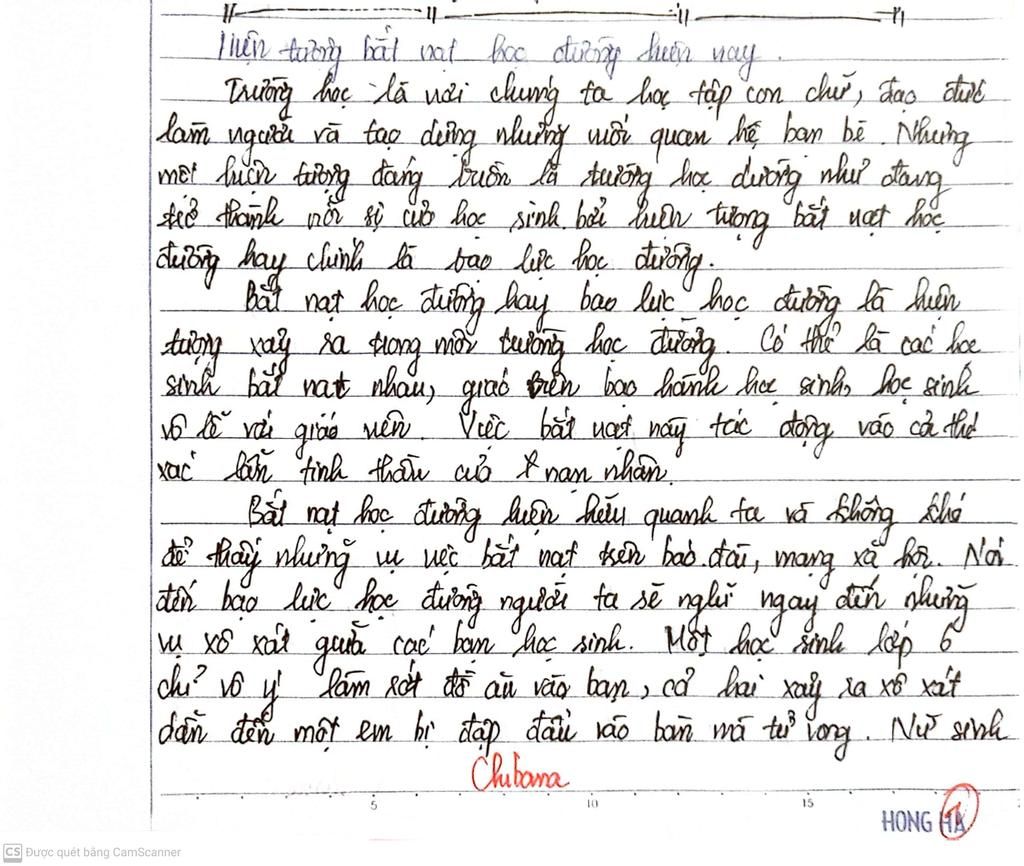 Hiện tượng bắt nạt học đường hiện nay.
Trường học là nơi chúng ta học tập con chữ, đạo đức
làm người và tạo dựng những mối quan hệ bạn bè. Nhưng
một hiện tượng đáng buồn là trường học dường như đang
trở thành nỗi sợ của học sinh bởi hiện tượng bắt nạt học
đường hay chính là bạo lực học đường.
Bắt nạt học đường hay bạo lực học đường là hiện
tượng xảy ra trong môi trường học đường. Có thể là các học
sinh bắt nạt nhau, giáo viên bạo hành học sinh, học sinh
vô lễ với giáo viên. Việc bắt nạt này tác động vào cả thể
xác lẫn tinh thần của nạn nhân.
Bắt nạt học đường hiện hữu quanh ta và không khó
để thấy những vụ việc bắt nạt trên báo đài, mạng xã hội. Nói
đến bạo lực học đường người ta sẽ nghĩ ngay đến những
vụ xô xát giữa các bạn học sinh. Một học sinh lớp 6
chỉ vô ý làm rớt đồ ăn vào bạn, cả hai xảy ra xô xát
dẫn đến một em bị đập đầu vào bàn mà tử vong. Nữ sinh
Chibana
5 10 15
HONG HA
1
CS Được quét bằng CamScanner